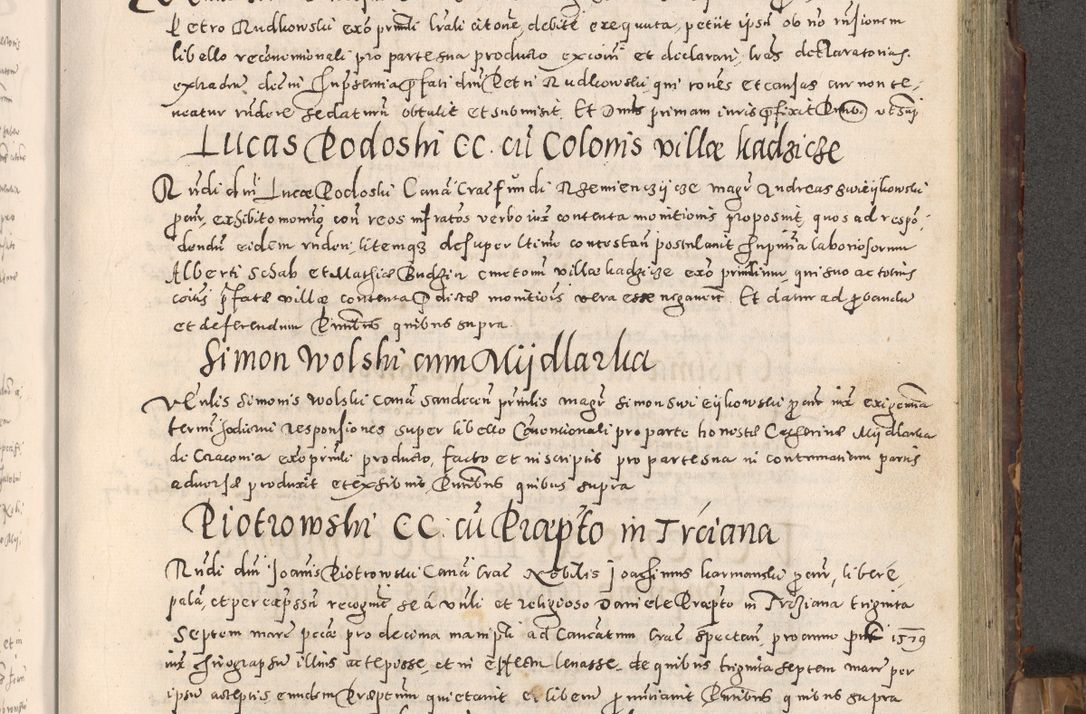 Petro Rudkowski exō prīnti lrāli citone, debite exequuta, petiit ipsū ob nō rnsionem
libello reconventionali pro parte sua producto excoīri et declarari, lras declaratorias
extradi decerni In pñtia pfati dnī Petri Rudkowski, qui rones et causas cur non te-
neatur rndere se daturū obtulit et submisit. Et Dnus primam iuris pfixit Pñtibus ut supra
Lucas Podoski CC. cū Colonis villæ kadzicze
Rndi dnī Lucæ Podoski Canci Crac fundi Rzemienczijcze magr Andreas Swieijkowski
pcur, exhibito monrio con reos infratos verbo iux contenta monitionis proposuit, quos ad respō-
dendū eidem rnderi, litemqz desuper ltime contestari postulavit In pñtia laboriosorum
Alberti Schab et Mathiæ Budzin cmetonū villæ kadzicze exō prntium qui suo ac totius
coitis pfatæ villæ contenta pdictæ monitiois vera esse negavert. Et datur ad probandū
et deferendum Pñtibus quibus supra
Simon Wolski cum Mijdlarka
Vēnlis Simonis Wolski Canci Sandecn prntis magr Simon Swieijkowski pcur iux exigentia
termi hodierni responsiones super libello Conventionali pro parte honestæ Catherinæ Mijdlarka
de Cracovia exō prnti producto, facto et in scriptis pro parte sua in contumatiam partis
adversæ produxit et exhibuit, Pñtibus quibus supra
Piotrowski CC. cū Præpto in Trciana
Rndi dnī Joannis Piotrowski Canci Crac Nobilis Joachimus karmanski pcur, libere,
palā, et per expssū recognt se á vnli et religioso Daniele Præpto in Trciana triginta
Septem marc pccæ pro decima manipli ad Cancatum Crac spectan, pro anno pnt 1579
iux chirographū illius accepisse, et in effectm levasse, de quibus triginta septem marc per
ipsū acceptis eundem Præptum quietavit et liberū pnunciavit Pñtibus quibus supra